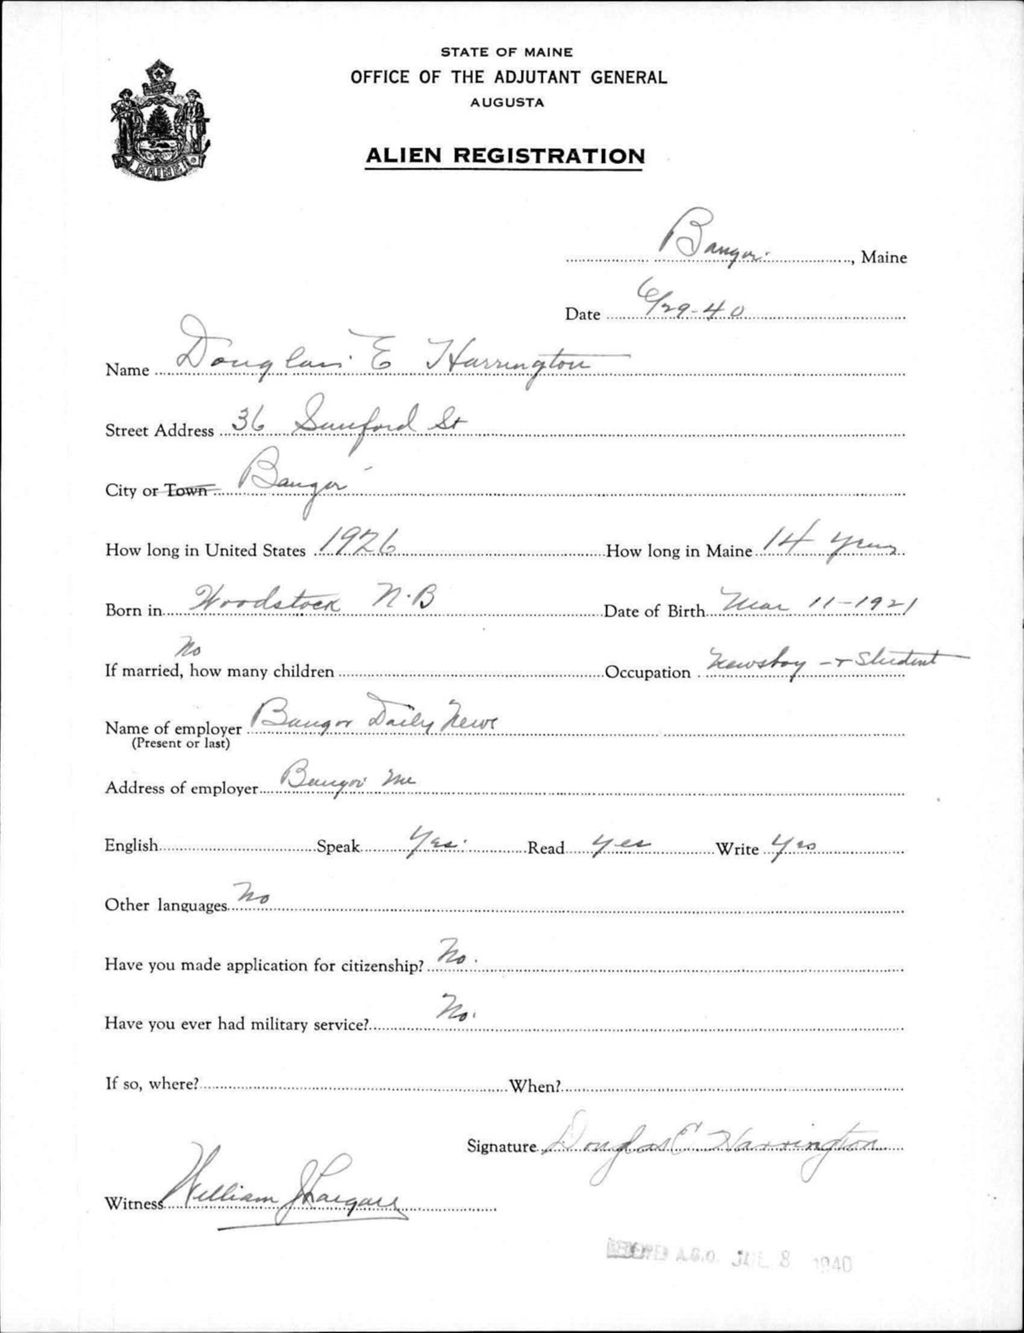 STATE OF MAINE
OFFICE OF THE ADJUTANT GENERAL
AUGUSTA
ALIEN REGISTRATION
MAINE
Bangor, Maine
Date 6/29-40
Name Douglas E Harrington
Street Address 36 Sanford St
City or Town Bangor
How long in United States 1926 How long in Maine 14 years
Born in Woodstock N.B Date of Birth Mar 11-1921
No
If married, how many children Occupation Newsboy -+ Student
Name of employer Bangor Daily News
(Present or last)
Address of employer Bangor Me
English Speak Yes. Read Yes Write Yes
Other languages No
Have you made application for citizenship? No.
Have you ever had military service? No.
If so, where? When?
Signature Douglas E Harrington
Witness William J
A.G.O. JUL 8 1940